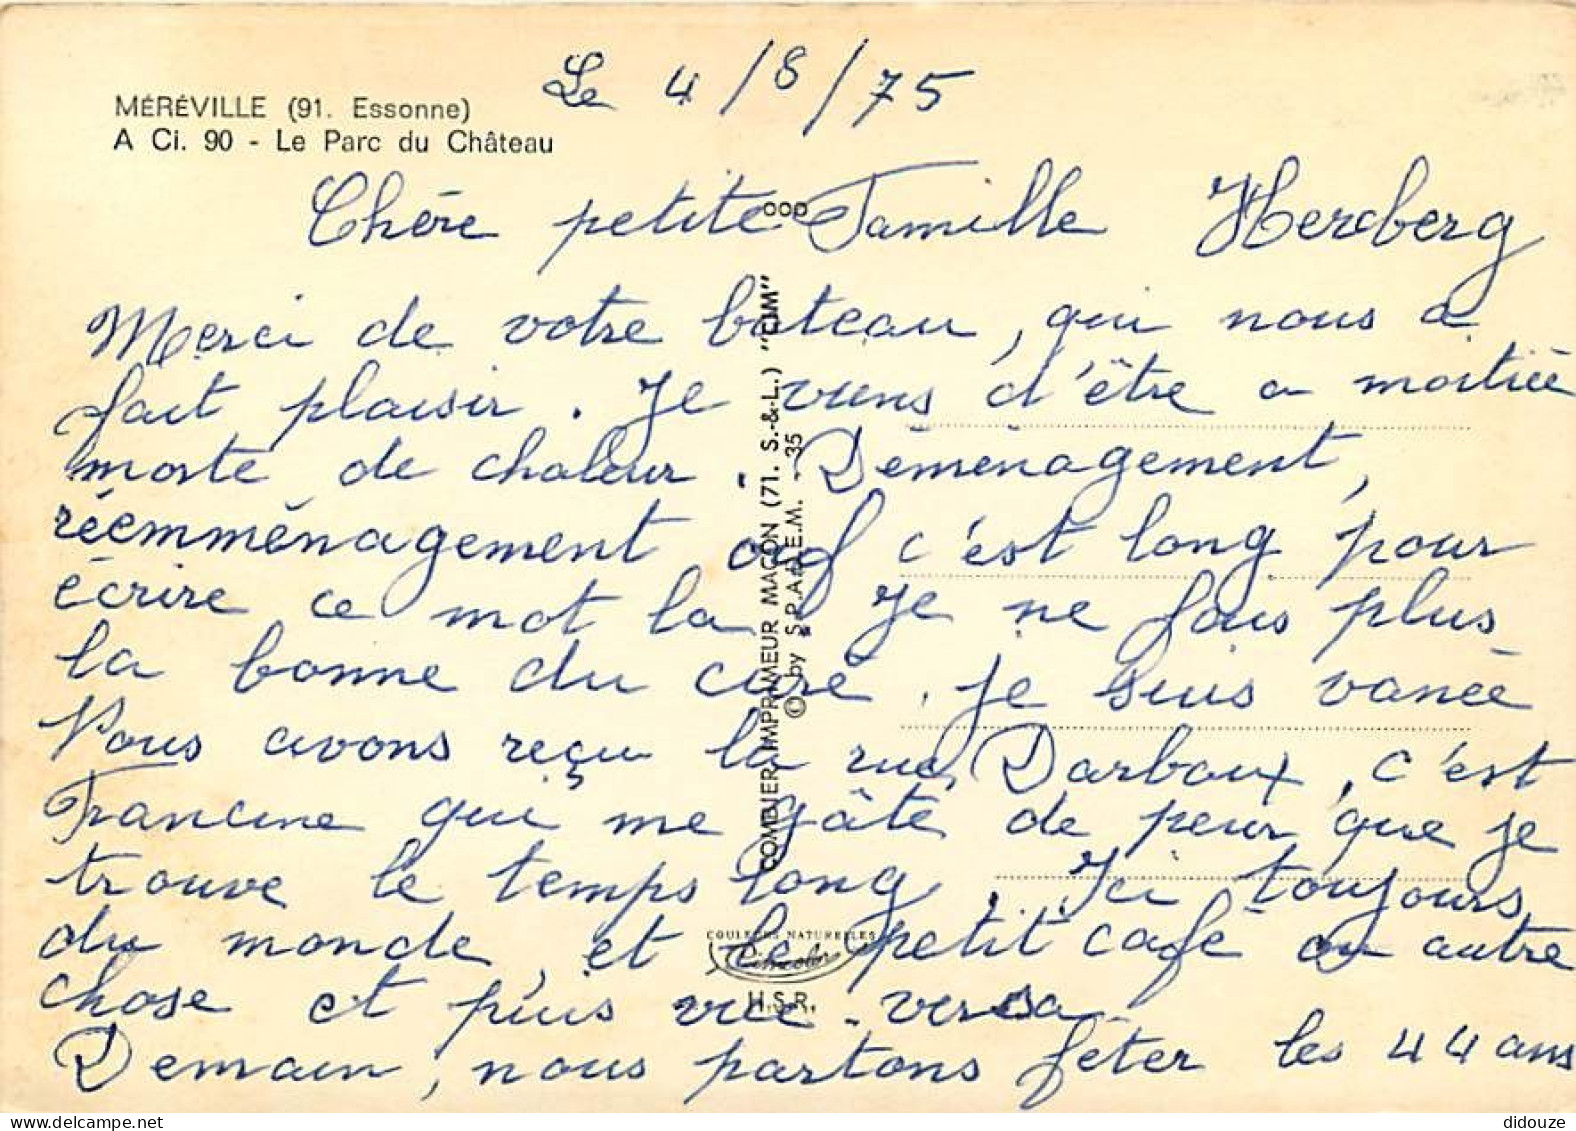 MÉRÉVILLE (91. Essonne)
A Ci. 90 - Le Parc du Château
Le 4/8/75
Chère petite Famille Hercberg
Merci de votre bateau, qui nous a
fait plaisir. Je viens d'être a moitiée
morte de chaleur. Déménagement,
réemménagement ouf c'est long pour
écrire ce mot la. Je ne fais plus
la bonne du curé, je suis vanée
Nous avons reçu la rue Darboux, c'est
Francine qui me gâte de peur que je
trouve le temps long. Ici toujours
du monde, et le petit café ou autre
chose et puis vice-versa
Demain, nous partons fêter les 44 ans
OOD
COMBIER IMPRIMEUR MACON (71. S.-&-L.) "CIM"
© by S.P.A.D.E.M. - 35
COULEURS NATURELLES
Cimcolor
H.S.R.
didouze